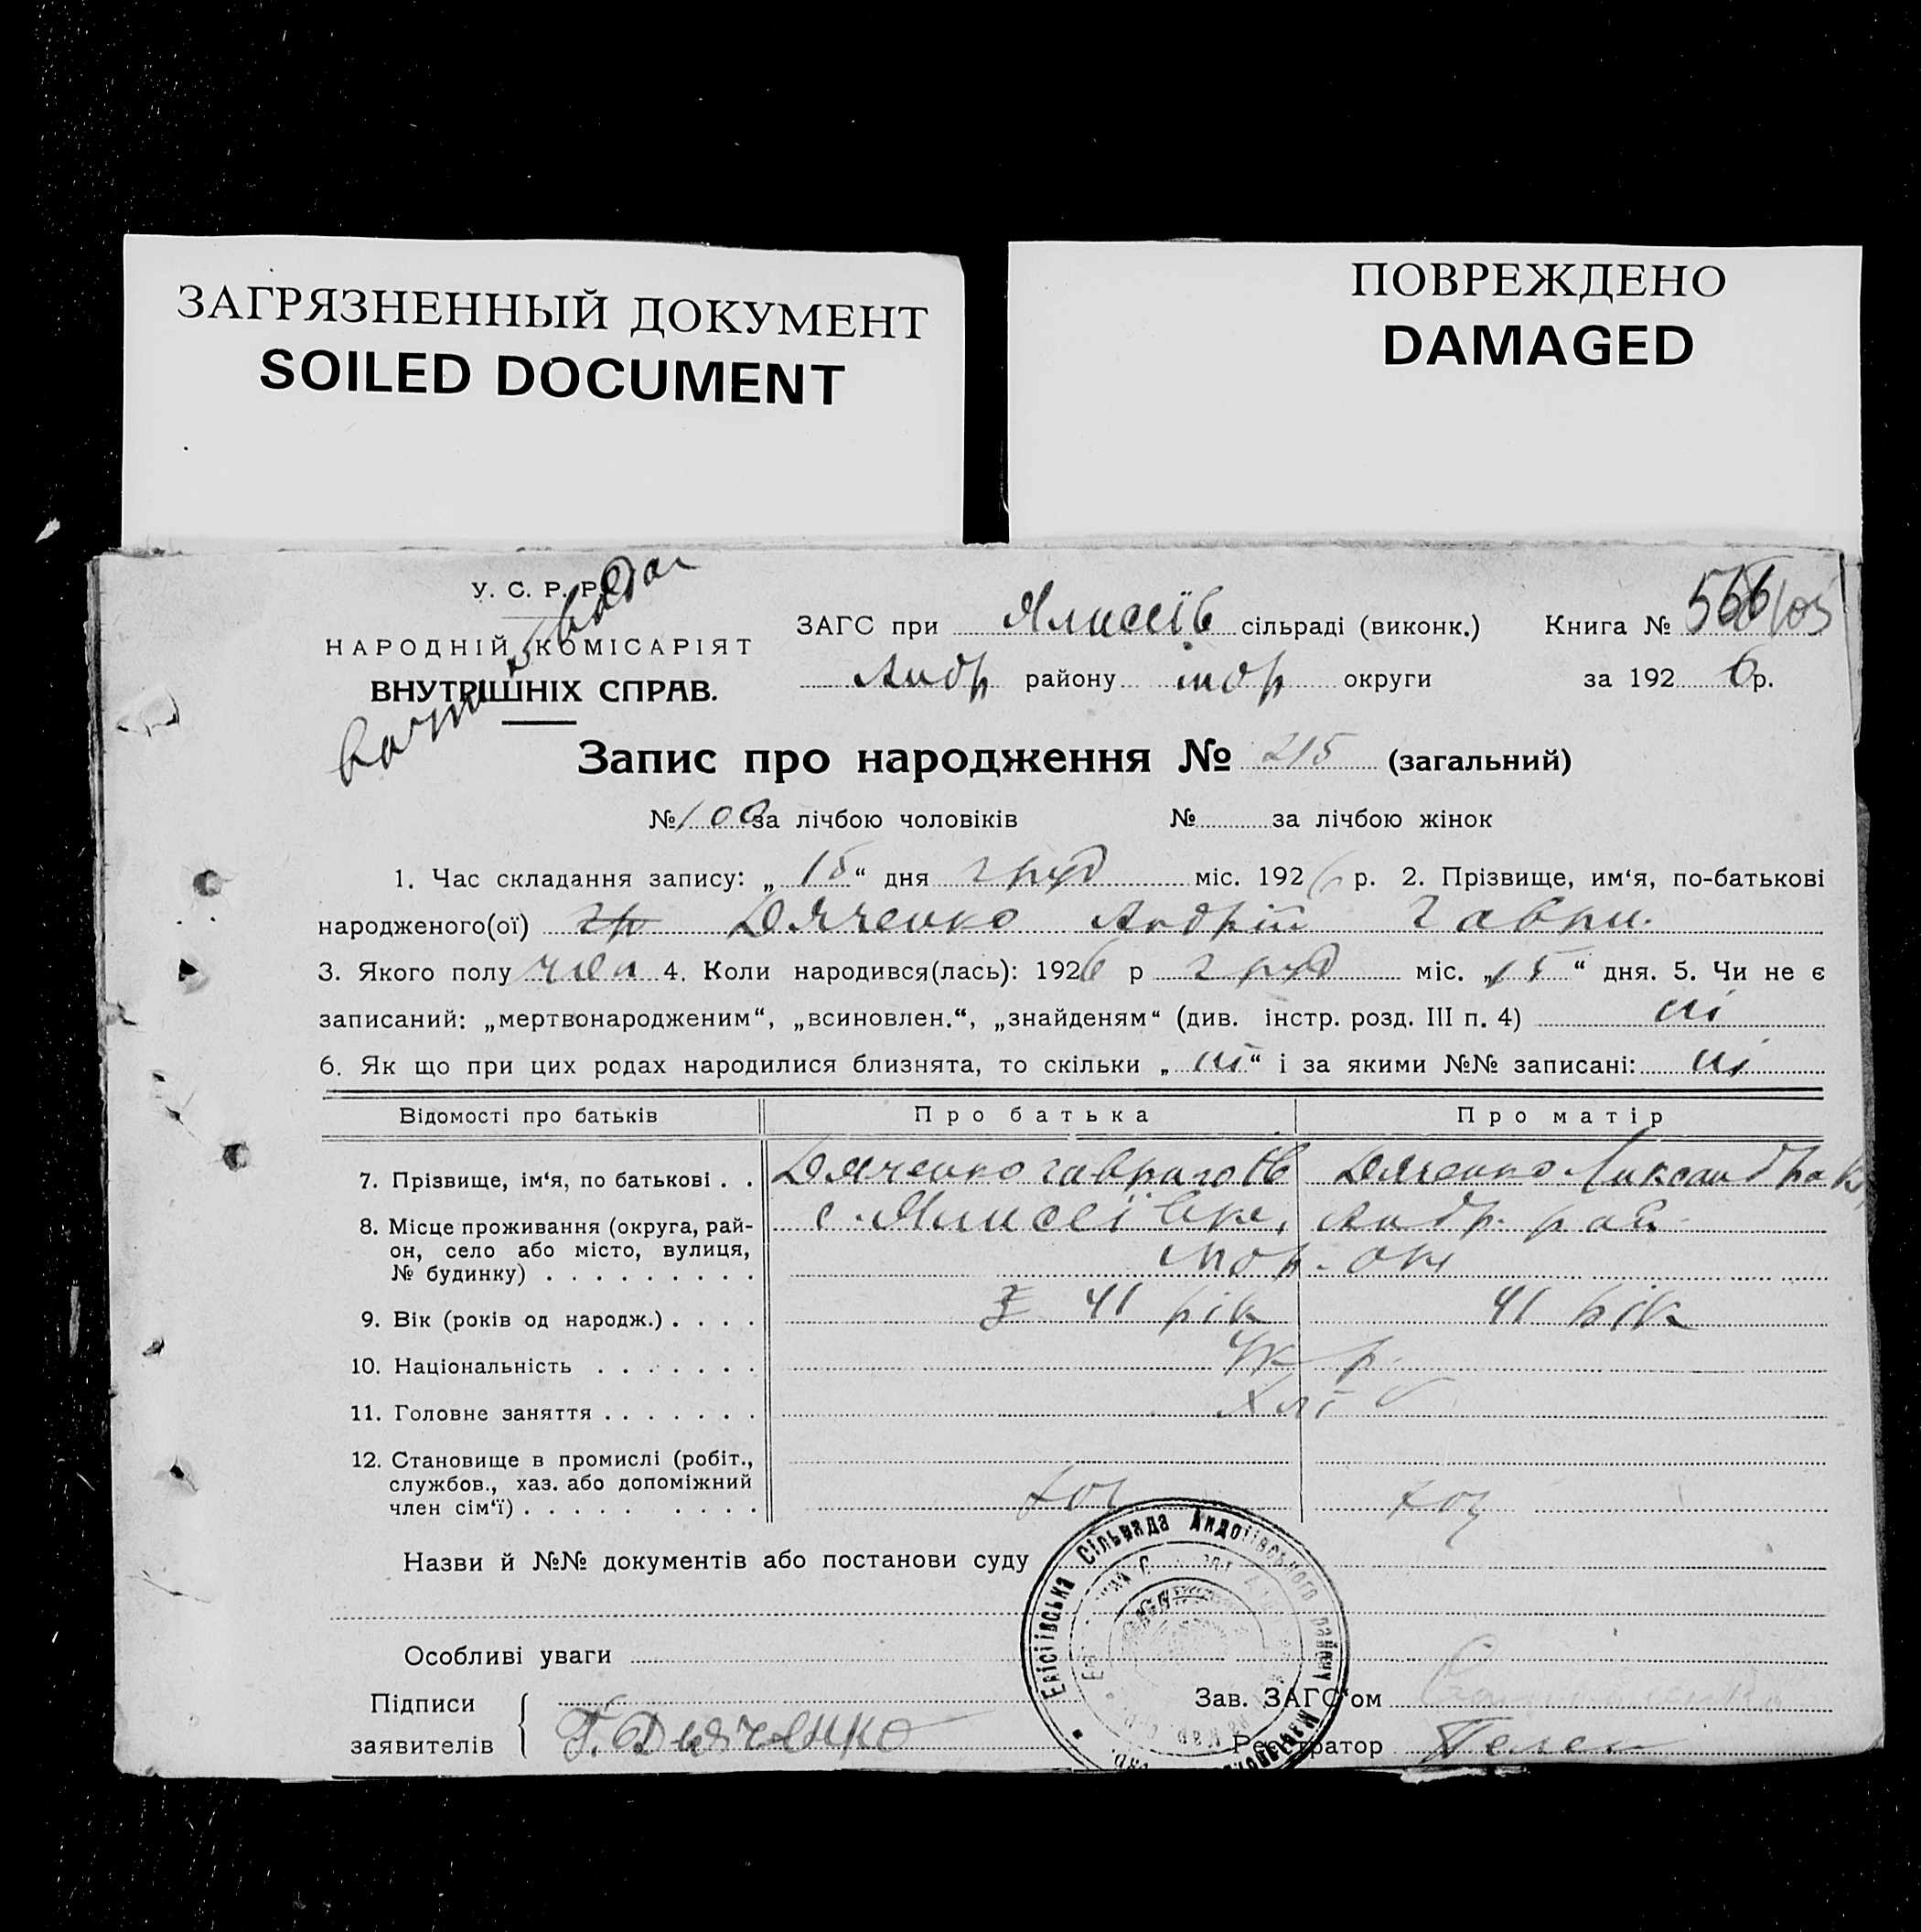 ЗАГРЯЗНЕННЫЙ ДОКУМЕНТ
SOILED DOCUMENT
ПОВРЕЖДЕНО
DAMAGED
У. С. Р. Р.
НАРОДНІЙ КОМІСАРІЯТ
ВНУТРІШНІХ СПРАВ.
ЗАГС при сільраді (виконк.) Книга №
Андр району округи за 192 6 р.
Запис про народження № 215 (загальний)
№ 100 за лічбою чоловіків № за лічбою жінок
1. Час складання запису: „ 15 “ дня груд міс. 192 6 р. 2. Прізвище, им‘я, по-батькові
народженого(ої) Дяченко Андрій Гаври.
3. Якого полу чол 4. Коли народився(лась): 192 6 р груд міс. „ 15 “ дня. 5. Чи не є
записаний: „мертвонародженим“, „всиновлен.“, „знайденям“ (див. інстр. розд. III п. 4) ні
6. Як що при цих родах народилися близнята, то скільки „ ні “ і за якими №№ записані: ні
Відомості про батьків Про батька Про матір
7. Прізвище, ім‘я, по батькові . . Дяченко Дяченко
8. Місце проживання (округа, рай- с. Андр. рай
он, село або місто, вулиця,
№ будинку) . . . . . . . . .
9. Вік (років од народж.) . . . . 41 рік 41 рік
10. Національність . . . . . . . Укр.
11. Головне заняття . . . . . . . Хліб
12. Становище в промислі (робіт.,
службов., хаз. або допоміжний
член сім‘ї) . . . . . . . . . хоз хоз
Назви й №№ документів або постанови суду
Особливі уваги
Підписи
заявителів Г. Дьяченко
Зав. ЗАГС‘ом
Реєстратор
Сільрада Андріївського району